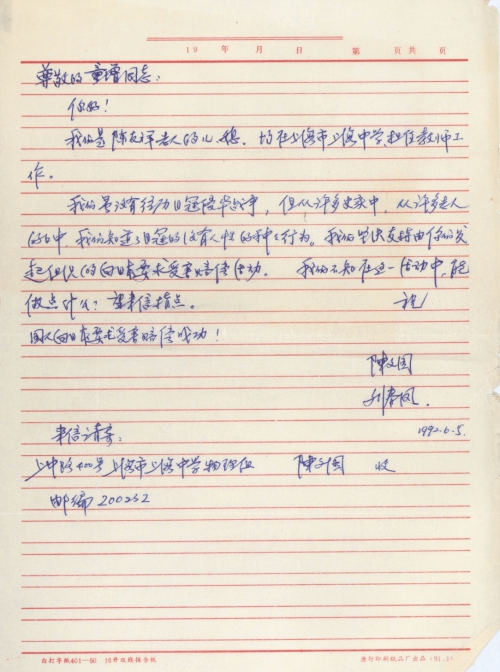 19 年 月 日 第 页共 页
尊敬的童增同志：
你好！
我们是陈友泽老人的儿、媳．均在上海市上海中学担任教师工
作。
我们虽没有经历日冠侵华战争，但从许多史家中，从许多老人
的口中，我们知道了日冠的没有人性的种种行为。我们坚决支持由你们发
起组织的向日本要求受害赔偿活动． 我们不知在这一活动中，能
做点什么？望来信指点． 祝
国人向日本要求受害赔偿成功！
陳文国
刘春凤．
来信请寄： 1992.6.5.
上中路400号上海市上海中学物理组 陳文国 收
邮编 200232
白打字纸401—50 16开双线报告纸